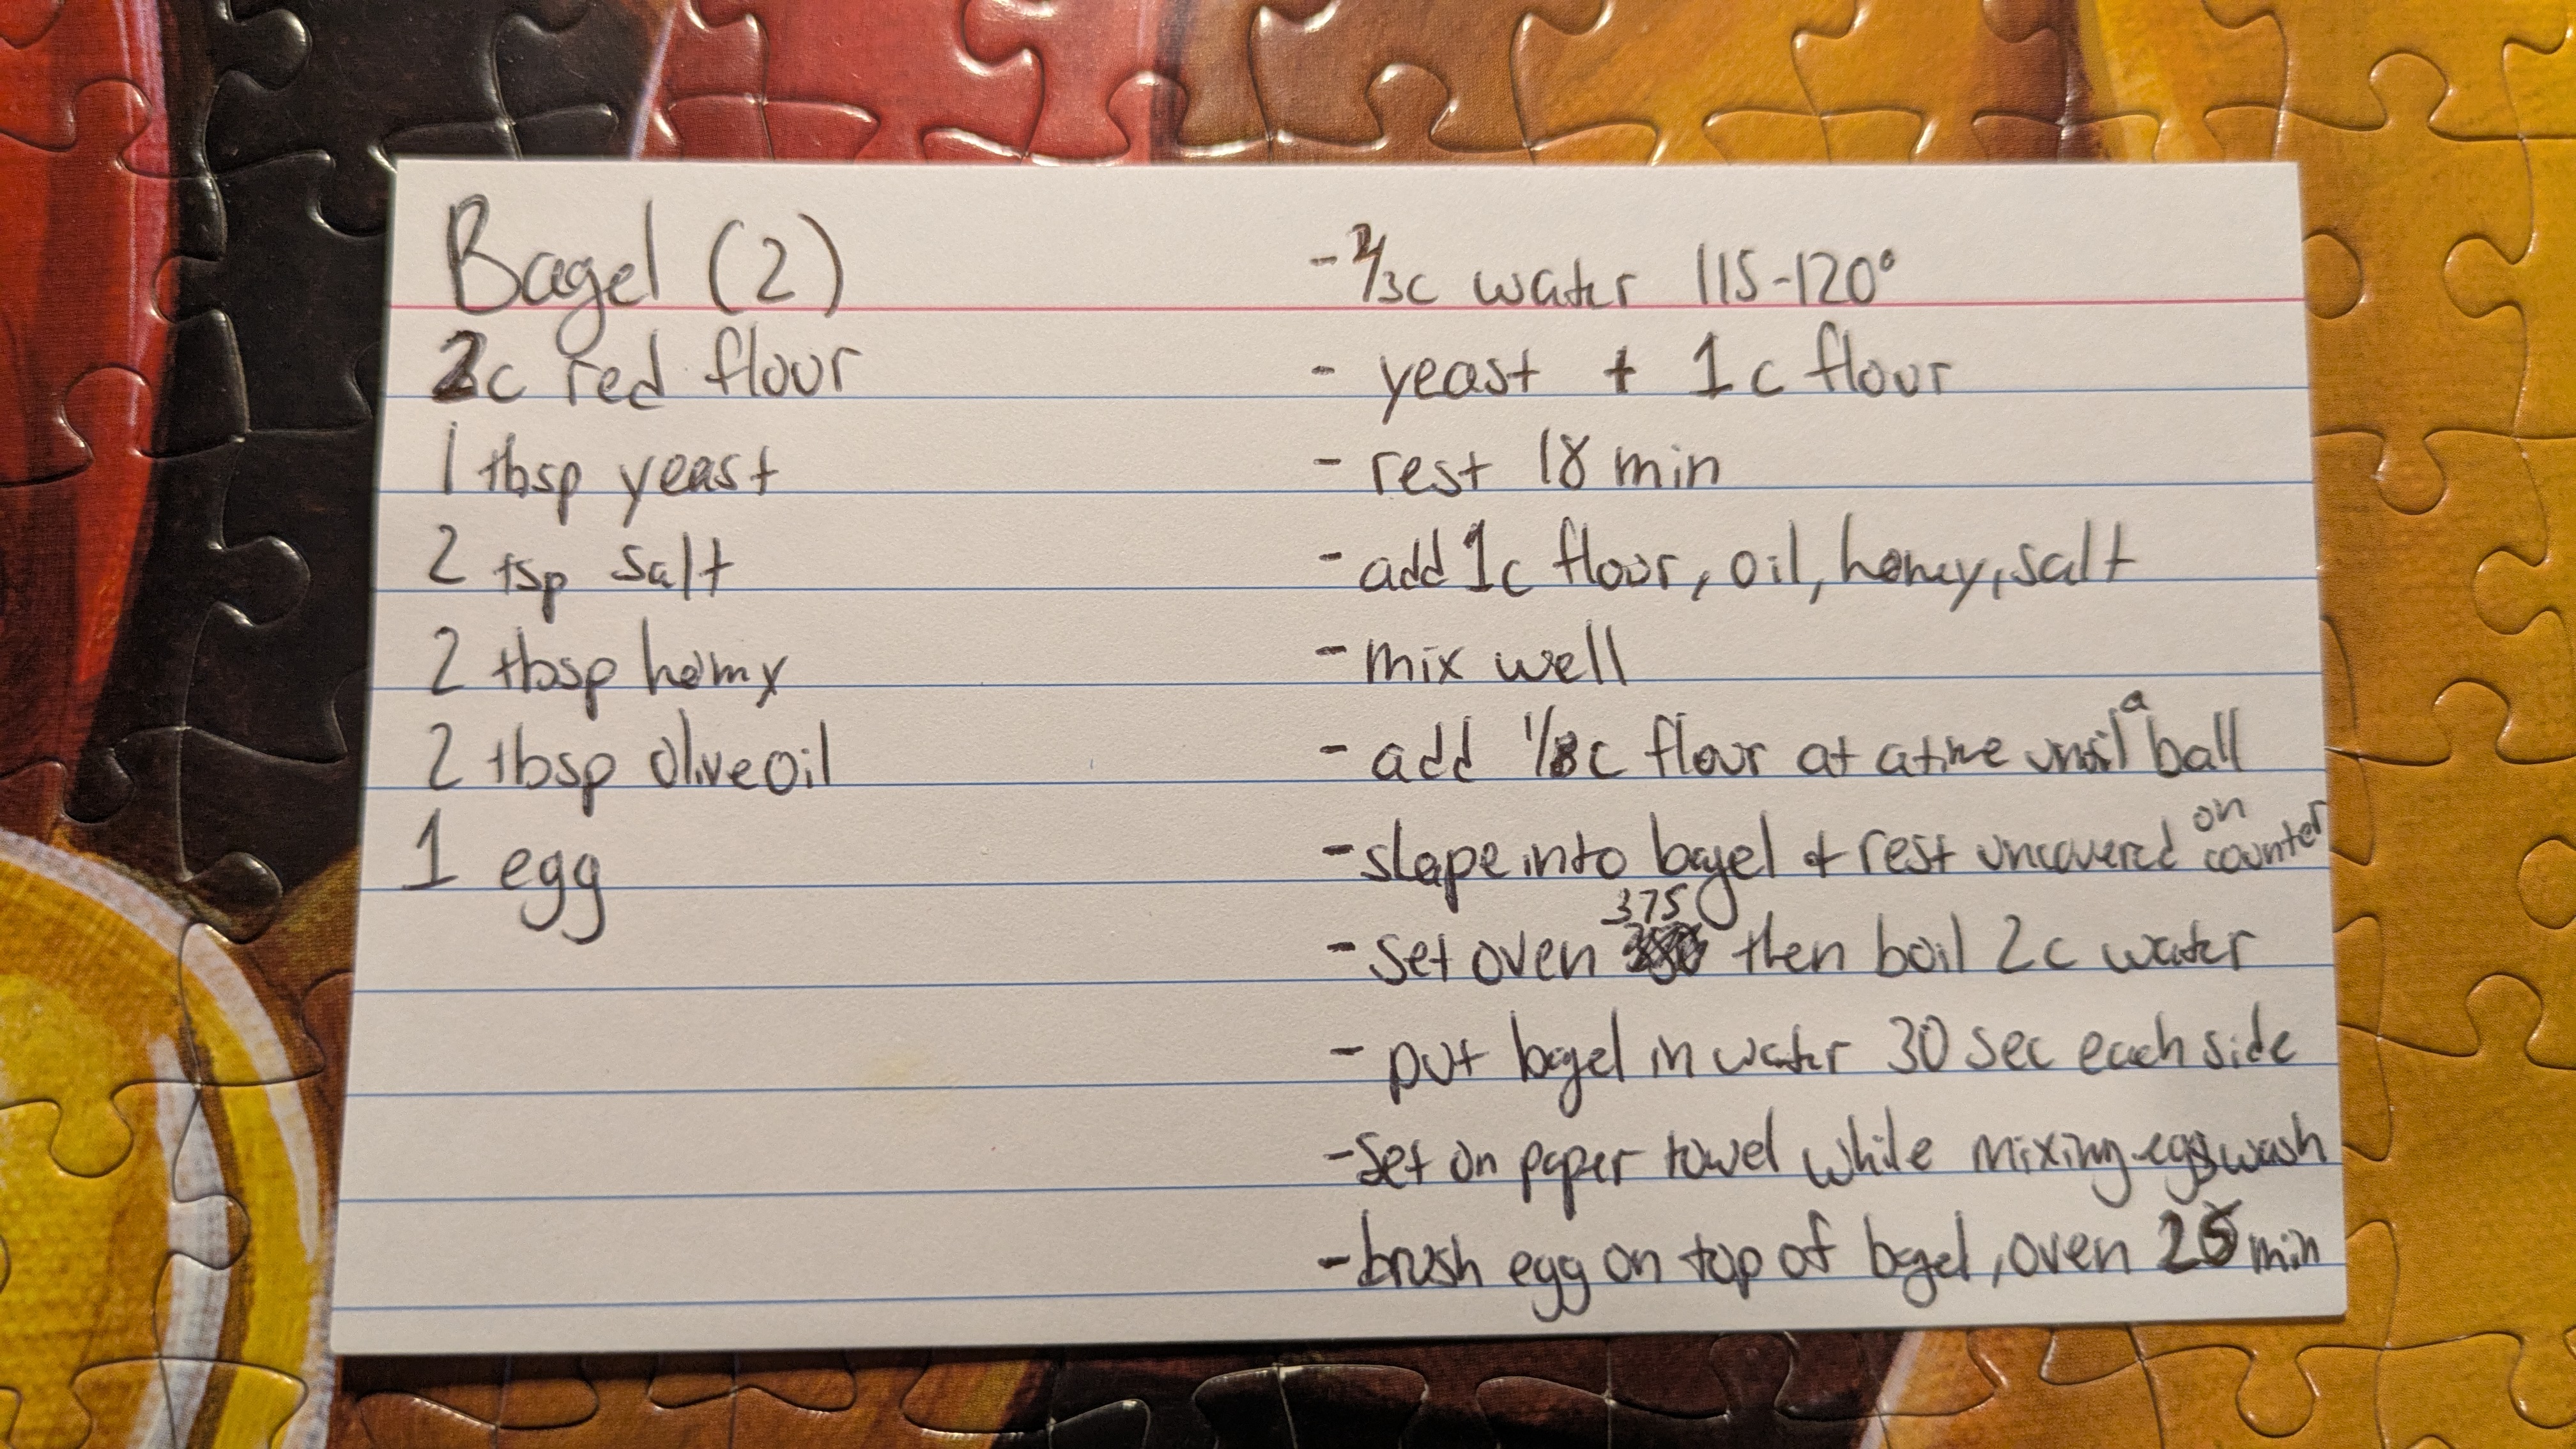 Bagel (2)
2c red flour
1 tbsp yeast
2 tsp salt
2 tbsp honey
2 tbsp olive oil
1 egg
- 2/3c water 115-120°
- yeast + 1c flour
- rest 18 min
- add 1c flour, oil, honey, salt
- mix well
- add 1/8c flour at a time until a ball
- shape into bagel + rest uncovered on counter
- set oven 375 then boil 2c water
- put bagel in water 30 sec each side
- set on paper towel while mixing egg wash
- brush egg on top of bagel, oven min